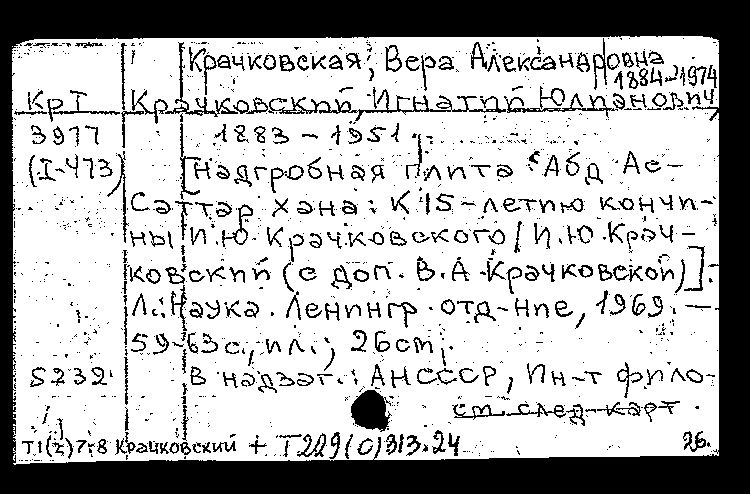 Крачковская, Вера Александровна
1884-1974
КрТ Крачковский, Игнатий Юлианович,
3977 1883 - 1951.
(I-473) [Надгробная плита ʿАбд Ас-
Саттар хана: К 15-летию кончи-
ны И.Ю. Крачковского / И.Ю. Крач-
ковский (с доп. В.А. Крачковской)].
Л.: Наука. Ленингр. отд-ние, 1969. —
59-63 с., ил.; 26 cm.
5232 В надзаг.: АН СССР, Ин-т фило-
см. след. карт.
Т1(2)7-8 Крачковский + Т229(0)313.24 26.